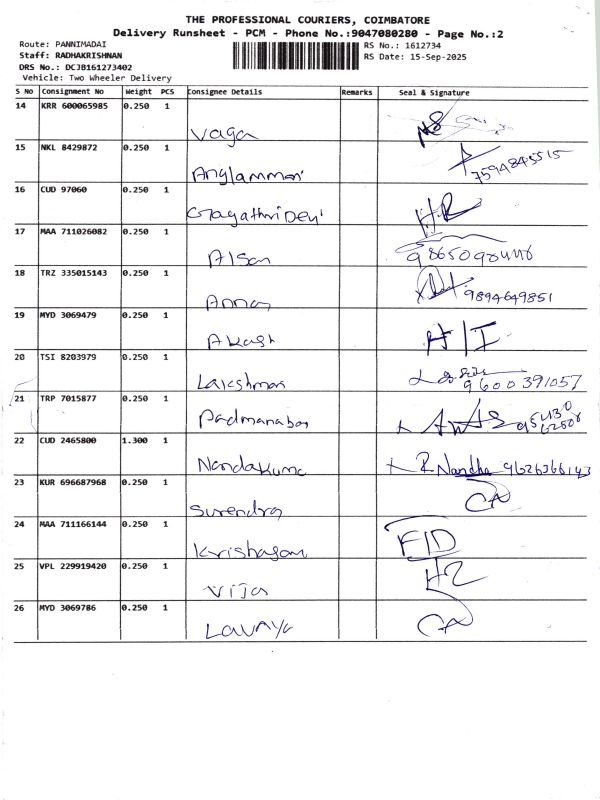 THE PROFESSIONAL COURIERS, COIMBATORE
Delivery Runsheet - PCM - Phone No.:9047080280 - Page No.:2
Route: PANNIMADAI RS No.: 1612734
Staff: RADHAKRISHNAN RS Date: 15-Sep-2025
DRS No.: DCJB161273402
Vehicle: Two Wheeler Delivery
S NO Consignment No Weight PCS Consignee Details Remarks Seal & Signature
14 KRR 600065985 0.250 1
Vaga
15 NKL 8429872 0.250 1
Anglamman 7594845515
16 CUD 97060 0.250 1
Gayathri Devi HR
17 MAA 711026082 0.250 1
Alsan
18 TRZ 335015143 0.250 1
Annas 9894649851
19 MYD 3069479 0.250 1
Akash H/I
20 TSI 8203979 0.250 1
Lakshman 9600391057
21 TRP 7015877 0.250 1
Padmanaban
22 CUD 2465800 1.300 1
Nandakuma R Nandha 9626366143
23 KUR 696687968 0.250 1
Surendra CA
24 MAA 711166144 0.250 1
FID
25 VPL 229919420 0.250 1
Vija HZ
26 MYD 3069786 0.250 1
Lavaya CA